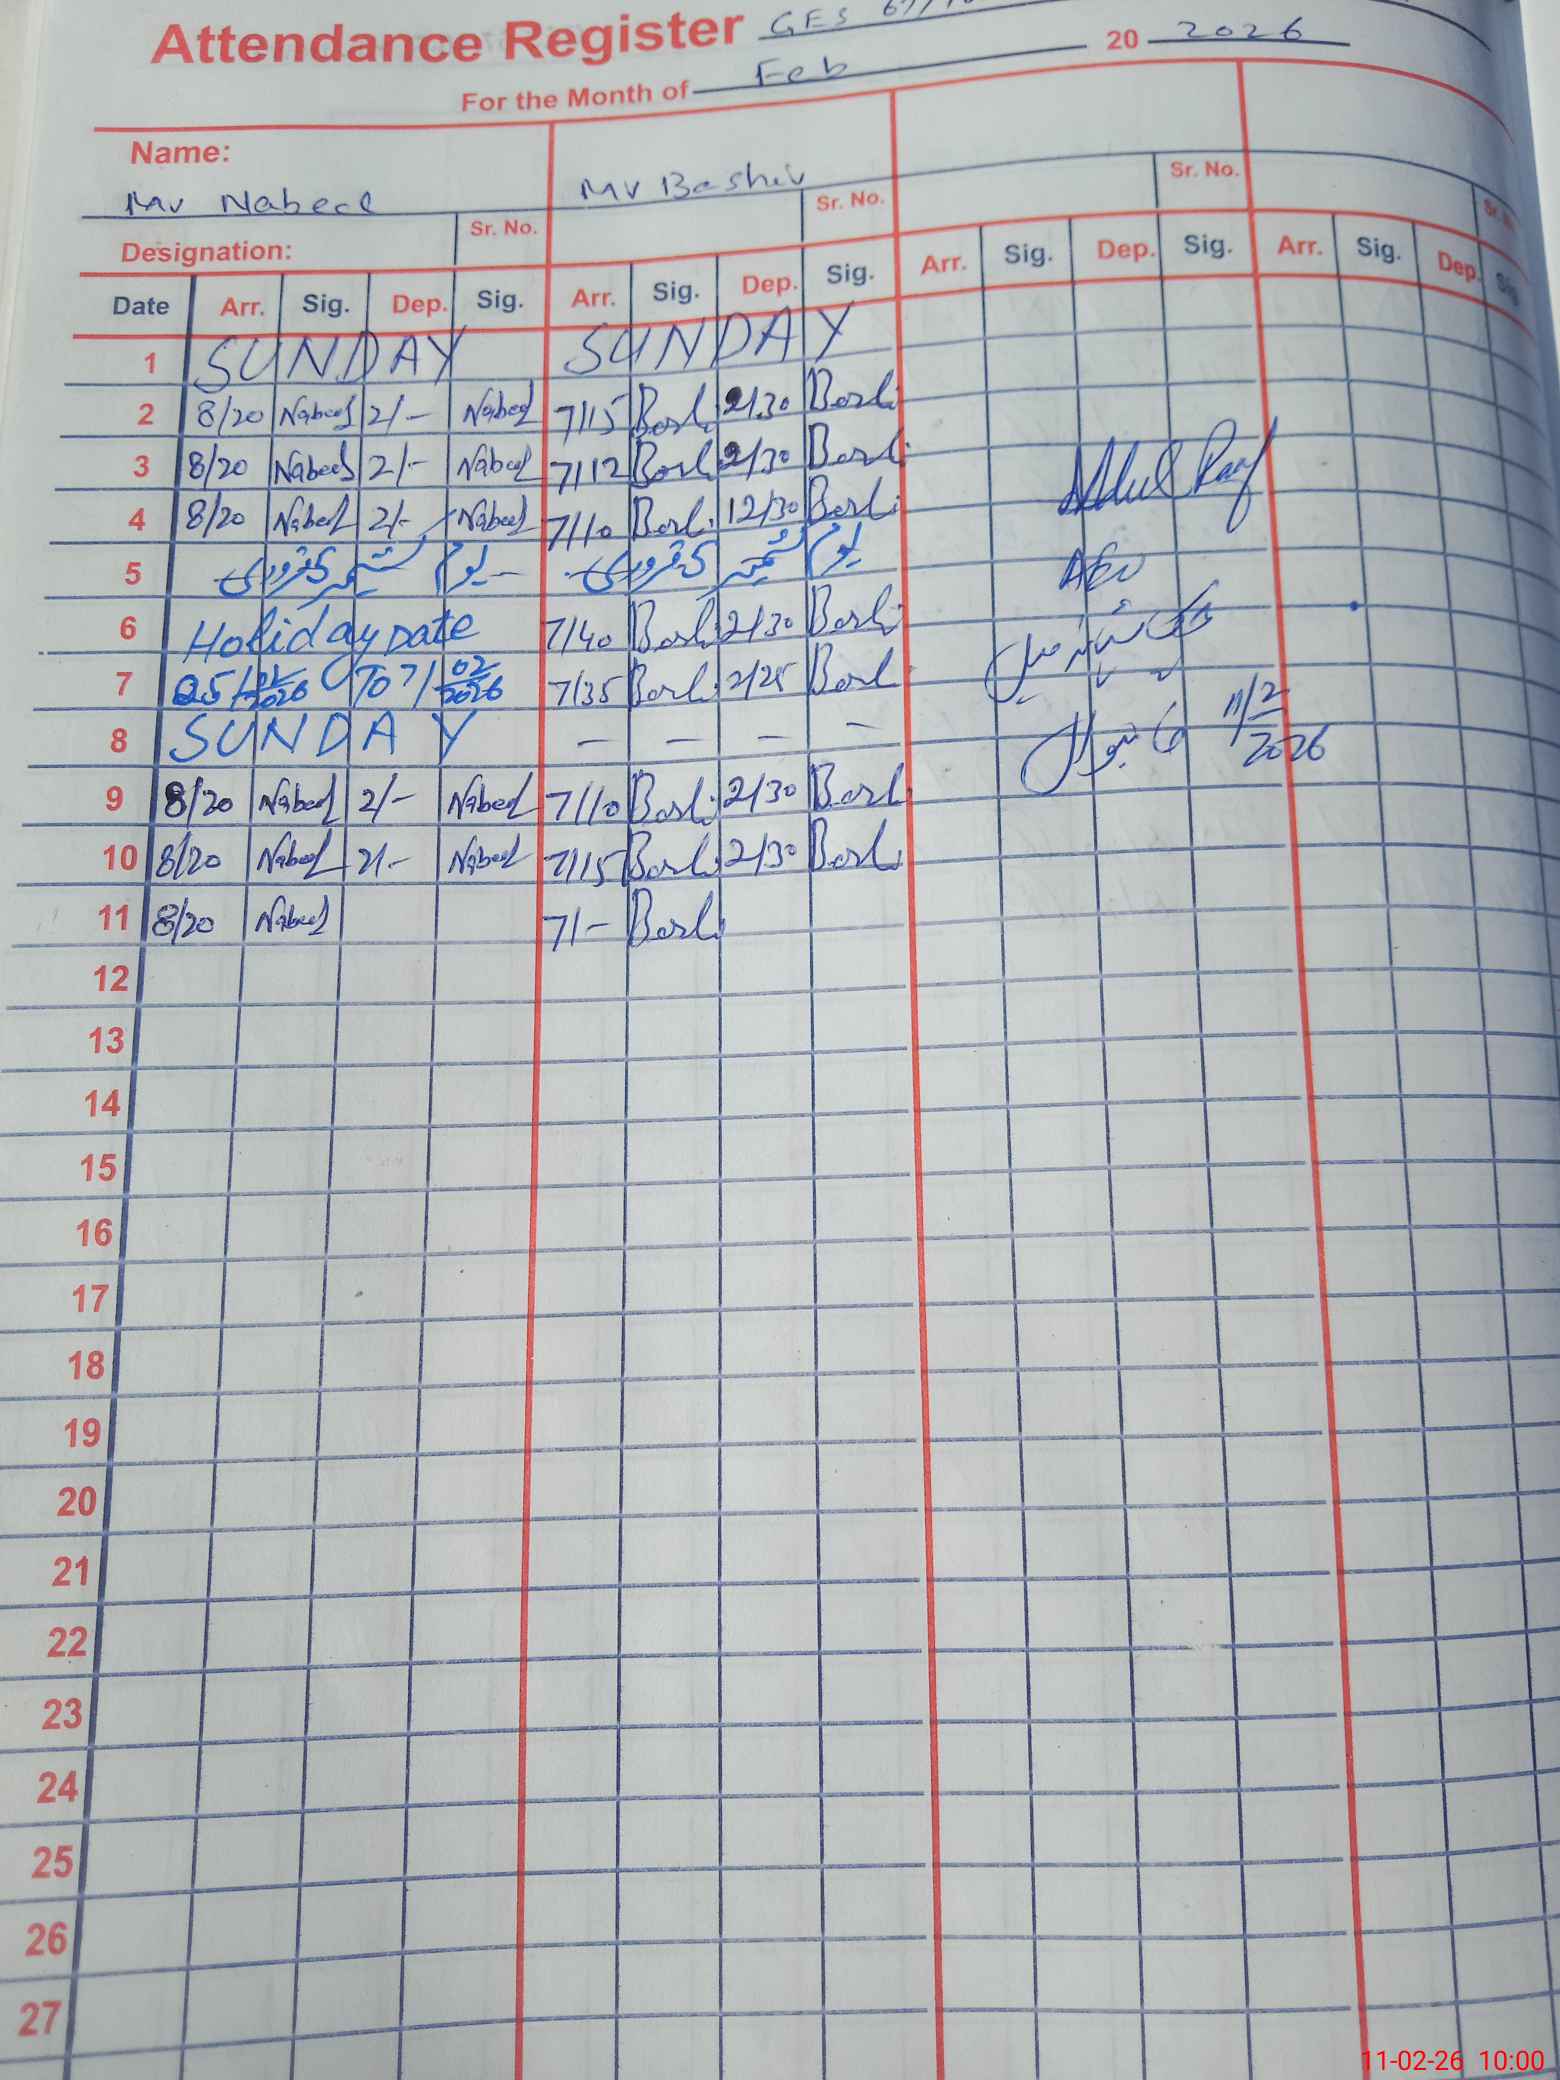 Attendance Register GES
For the Month of Feb 20 2026
Name:
Mr Nabeel Mr Bashir
Sr. No. Sr. No. Sr. No. Sr. No.
Designation:
Date Arr. Sig. Dep. Sig. Arr. Sig. Dep. Sig. Arr. Sig. Dep. Sig. Arr. Sig. Dep. Sig.
1 SUNDAY SUNDAY
2 8/20 Nabeel 2/- Nabeel 7/15 2/30
3 8/20 Nabeel 2/- Nabeel 7/12 2/30
4 8/20 Nabeel 2/- Nabeel 7/10 12/30
5 یوم کشمیر 5 فروری یوم کشمیر 5 فروری
6 Holiday Date 7/40 2/30
7 25/01/2026 To 7/02/2026 7/35 2/25
8 SUNDAY - - - -
9 8/20 Nabeel 2/- Nabeel 7/10 2/30
10 8/20 Nabeel 2/- Nabeel 7/15 2/30
11 8/20 Nabeel 7/-
Abdul Rauf
AEO
11/2/2026
12
13
14
15
16
17
18
19
20
21
22
23
24
25
26
27
11-02-26 10:00